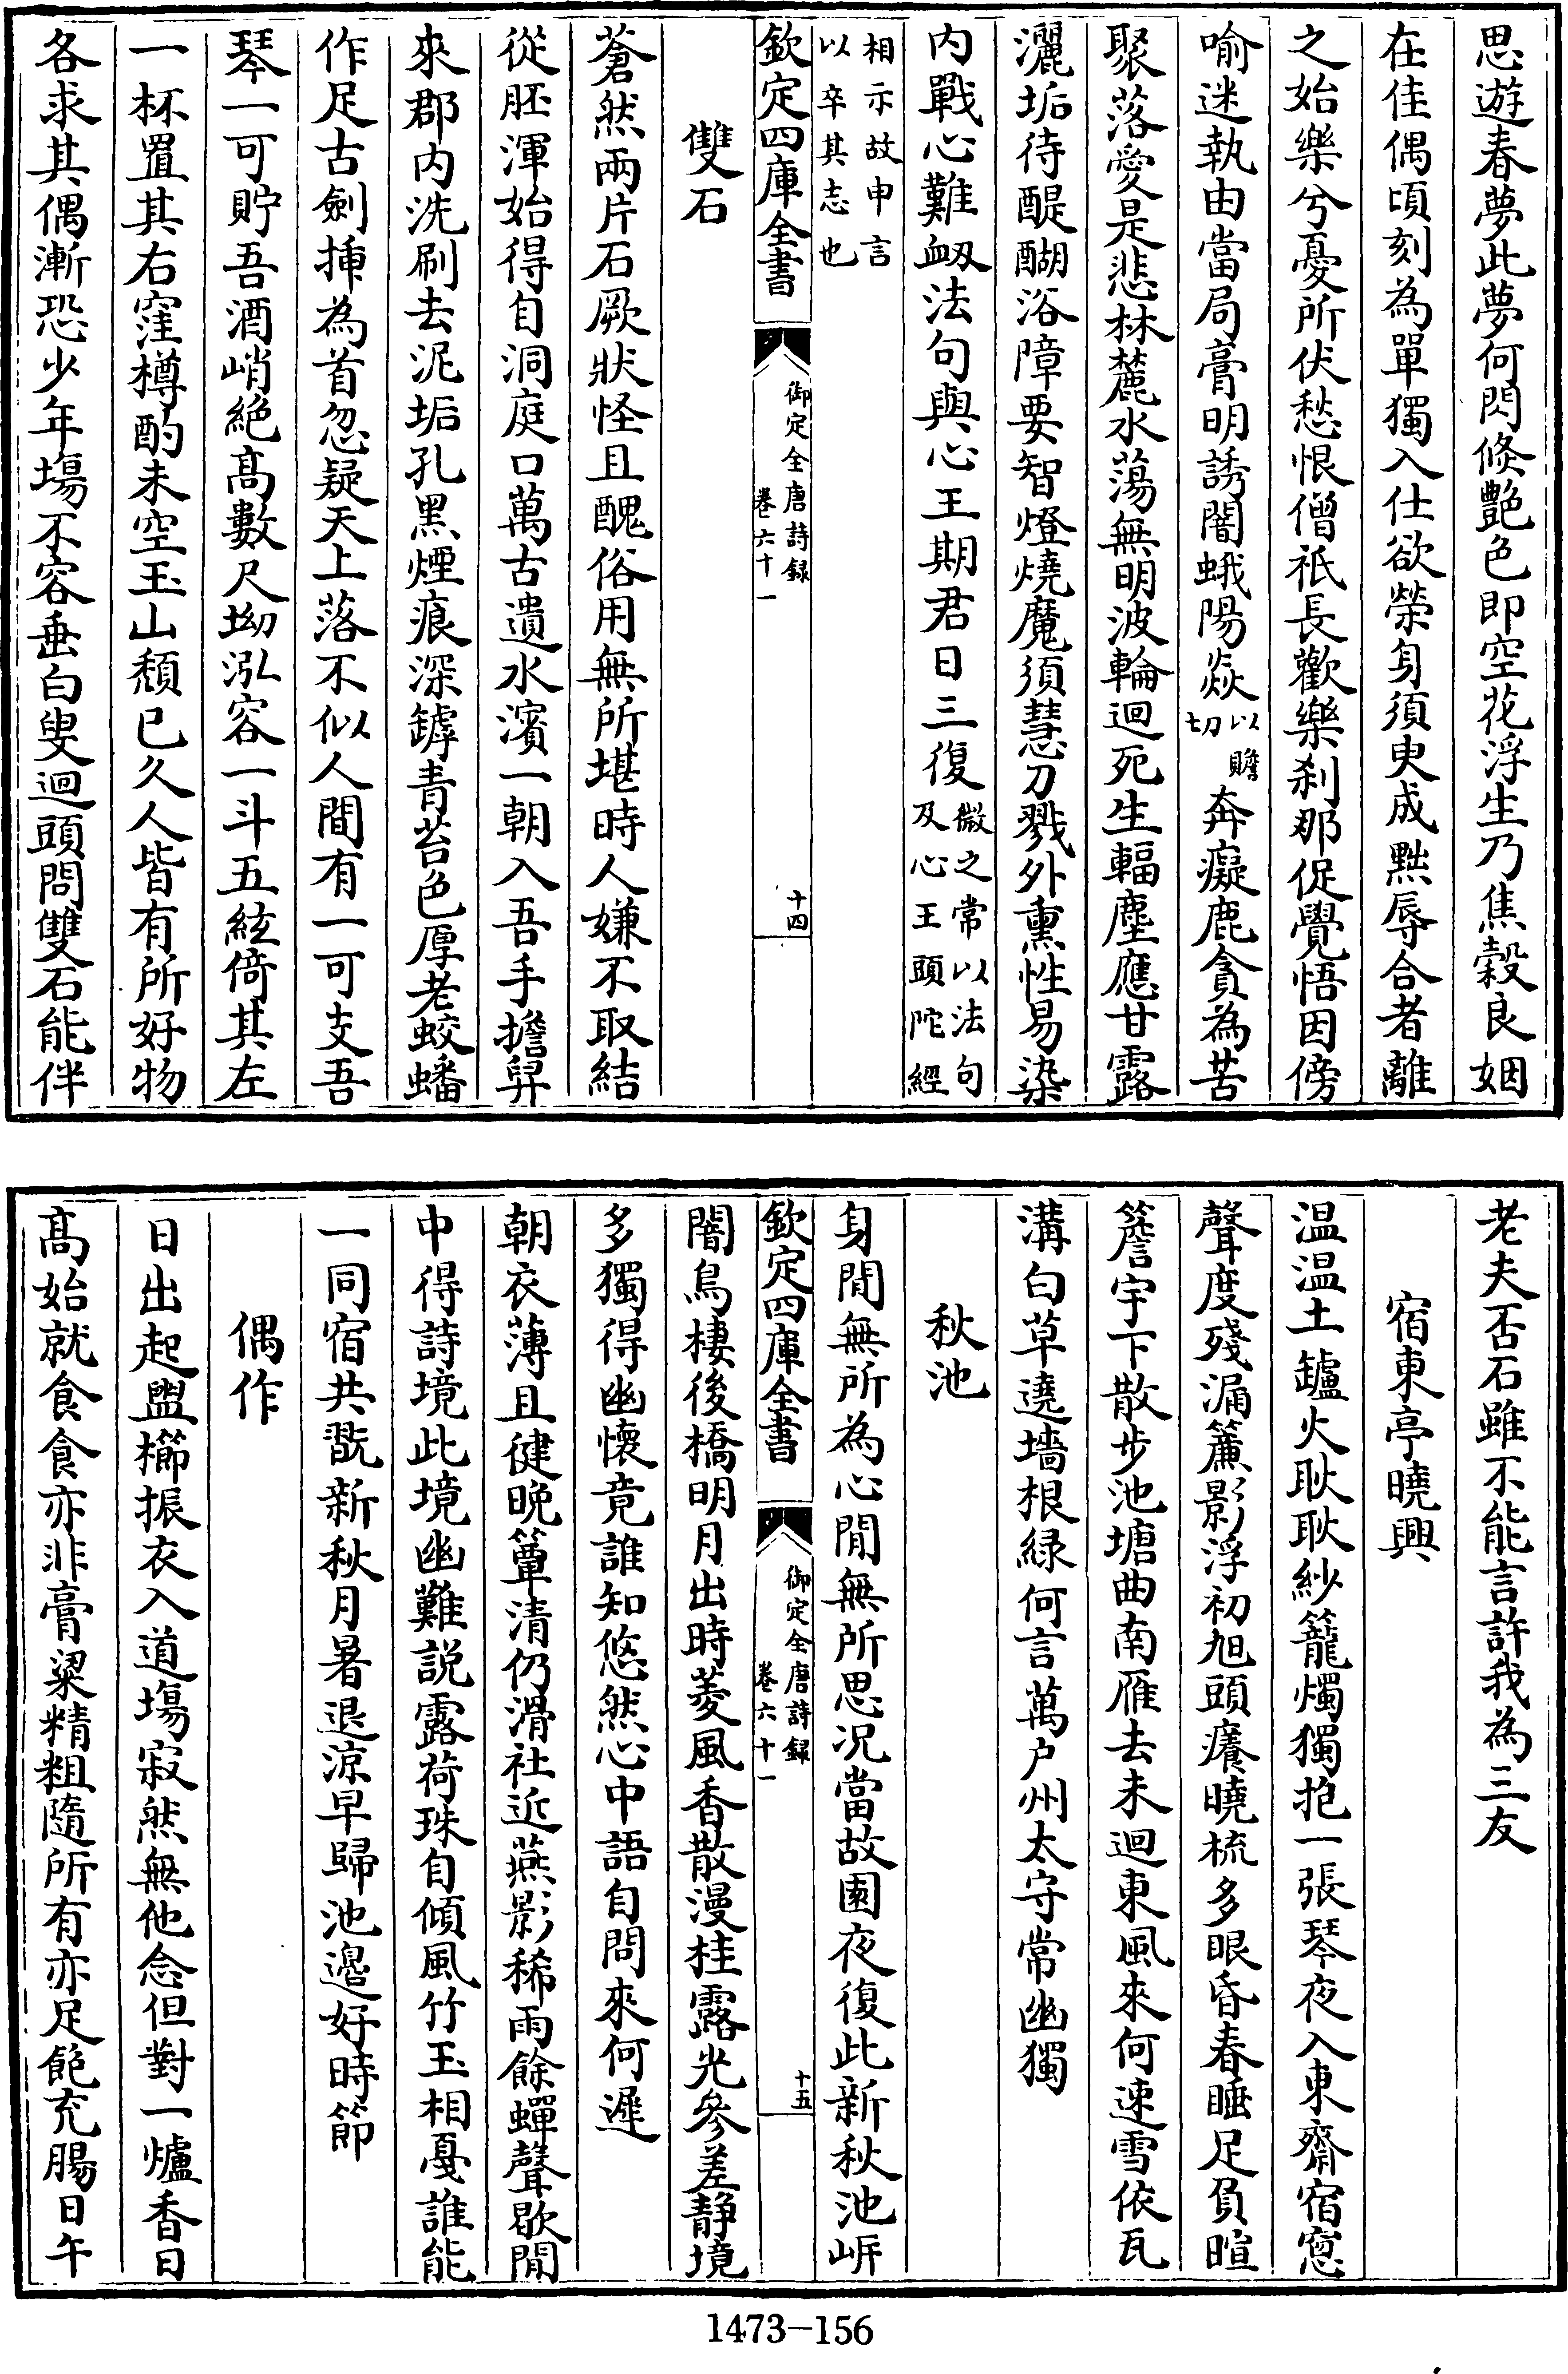 思遊春夢此夢何閃倐艷色即空花浮生乃焦榖良姻
在佳偶頃刻為單獨入仕欲榮身須臾成黜辱合者離
之始樂兮憂所伏愁恨僧祇長歡樂刹那促覺悟因傍
喻迷執由當局膏明誘闇蛾陽焱以贍切奔癡鹿貪為苦
聚落愛是悲林麓水蕩無明波輪迴死生輻塵應甘露
灑垢待醍醐浴障要智燈燒魔須慧刀戮外熏性易染
内戰心難衂法句與心王期君日三復微之常以法句及心王頭陀經
相示故申言以卒其志也
欽定四庫全書
御定全唐詩録
卷六十一
十四
雙石
蒼然兩片石厥狀怪且醜俗用無所堪時人嫌不取結
從胚渾始得自洞庭口萬古遺水濱一朝入吾手擔舁
來郡内洗刷去泥垢孔黑煙痕深罅青苔色厚老蛟蟠
作足古劍揷為首忽疑天上落不似人間有一可支吾
琴一可貯吾酒峭絶髙數尺坳泓容一斗五絃倚其左
一杯置其右窪樽酌未空玉山頹已久人皆有所好物
各求其偶漸恐少年塲不容垂白叟迴頭問雙石能伴
老夫否石雖不能言許我為三友
宿東亭曉興
温温土鑪火耿耿紗籠燭獨抱一張琴夜入東齋宿窓
聲度殘漏簾影浮初旭頭癢曉梳多眼昏春睡足負暄
簷宇下散步池塘曲南雁去未迴東風來何速雪依瓦
溝白草遶墻根緑何言萬户州太守常幽獨
秋池
身閒無所為心閒無所思况當故園夜復此新秋池岍
欽定四庫全書
御定全唐詩録
卷六十一
十五
闇鳥棲後橋明月出時菱風香散漫桂露光參差静境
多獨得幽懷竟誰知悠然心中語自問來何遲
朝衣薄且健晚簟清仍滑社近燕影稀雨餘蟬聲歇閒
中得詩境此境幽難説露荷珠自傾風竹玉相戞誰能
一同宿共翫新秋月暑退涼早歸池邊好時節
偶作
日出起盥櫛振衣入道塲寂然無他念但對一爐香日
髙始就食食亦非膏粱精粗隨所有亦足飽充腸日午
1473-156